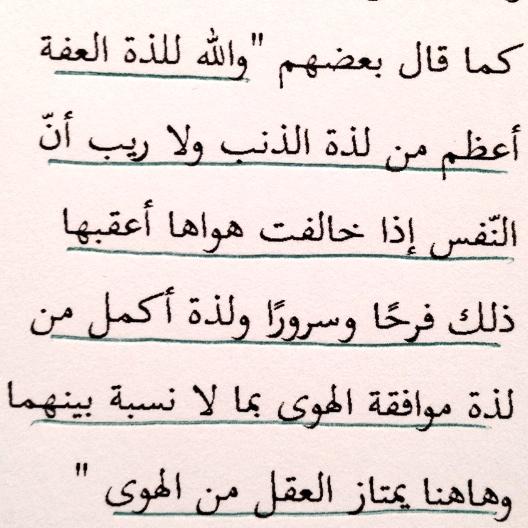 كما قال بعضهم "والله للذة العفة
أعظم من لذة الذنب ولا ريب أنّ
النّفس إذا خالفت هواها أعقبها
ذلك فرحًا وسرورًا ولذة أكمل من
لذة موافقة الهوى بما لا نسبة بينهما
وهاهنا يمتاز العقل من الهوى "